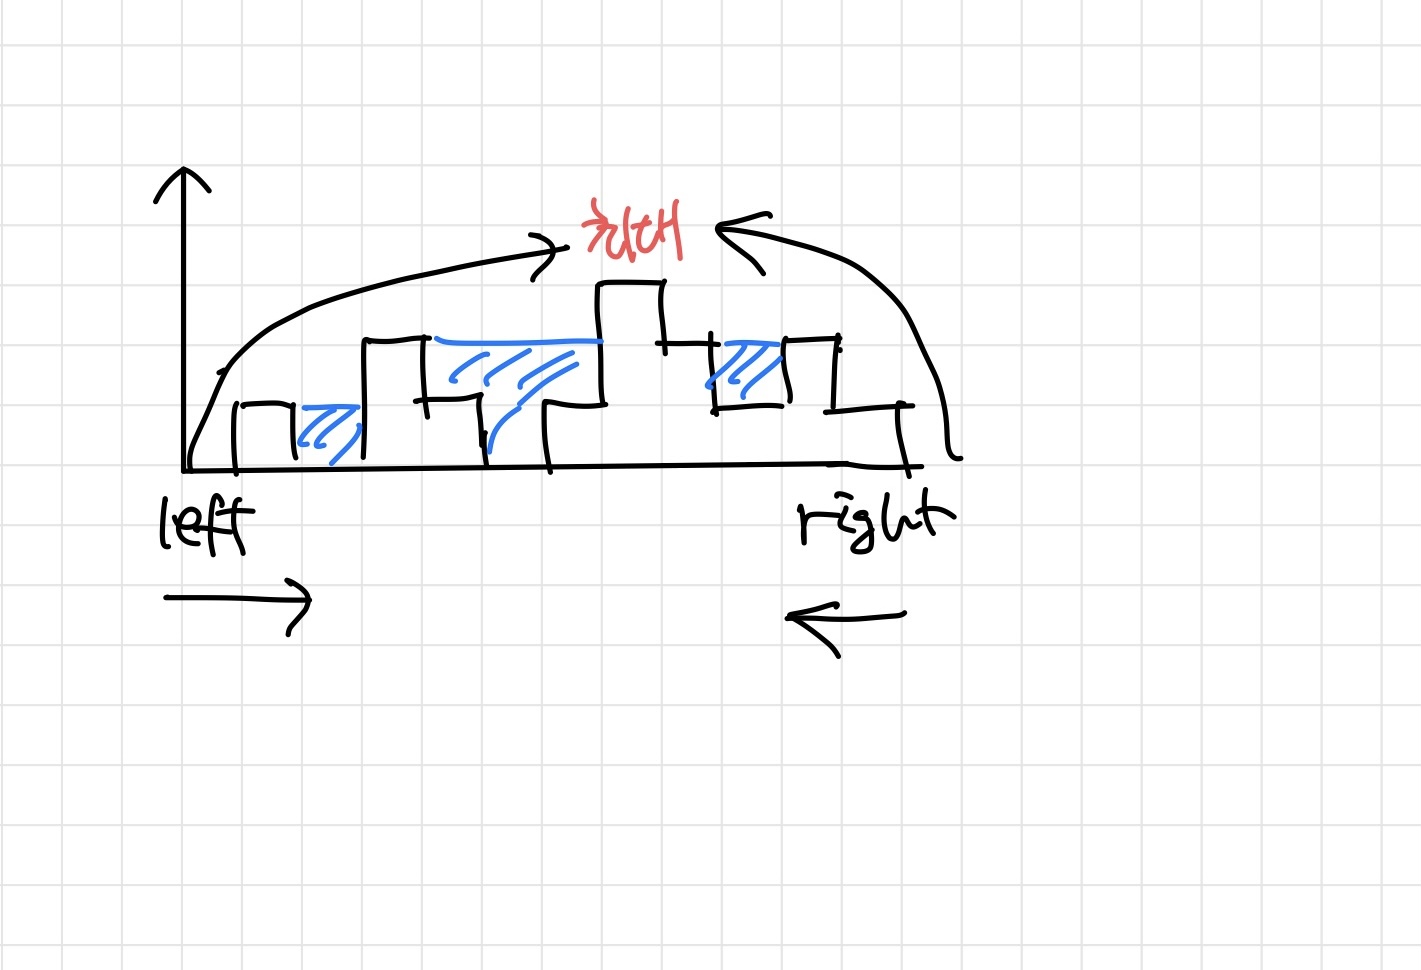 최대
left
right